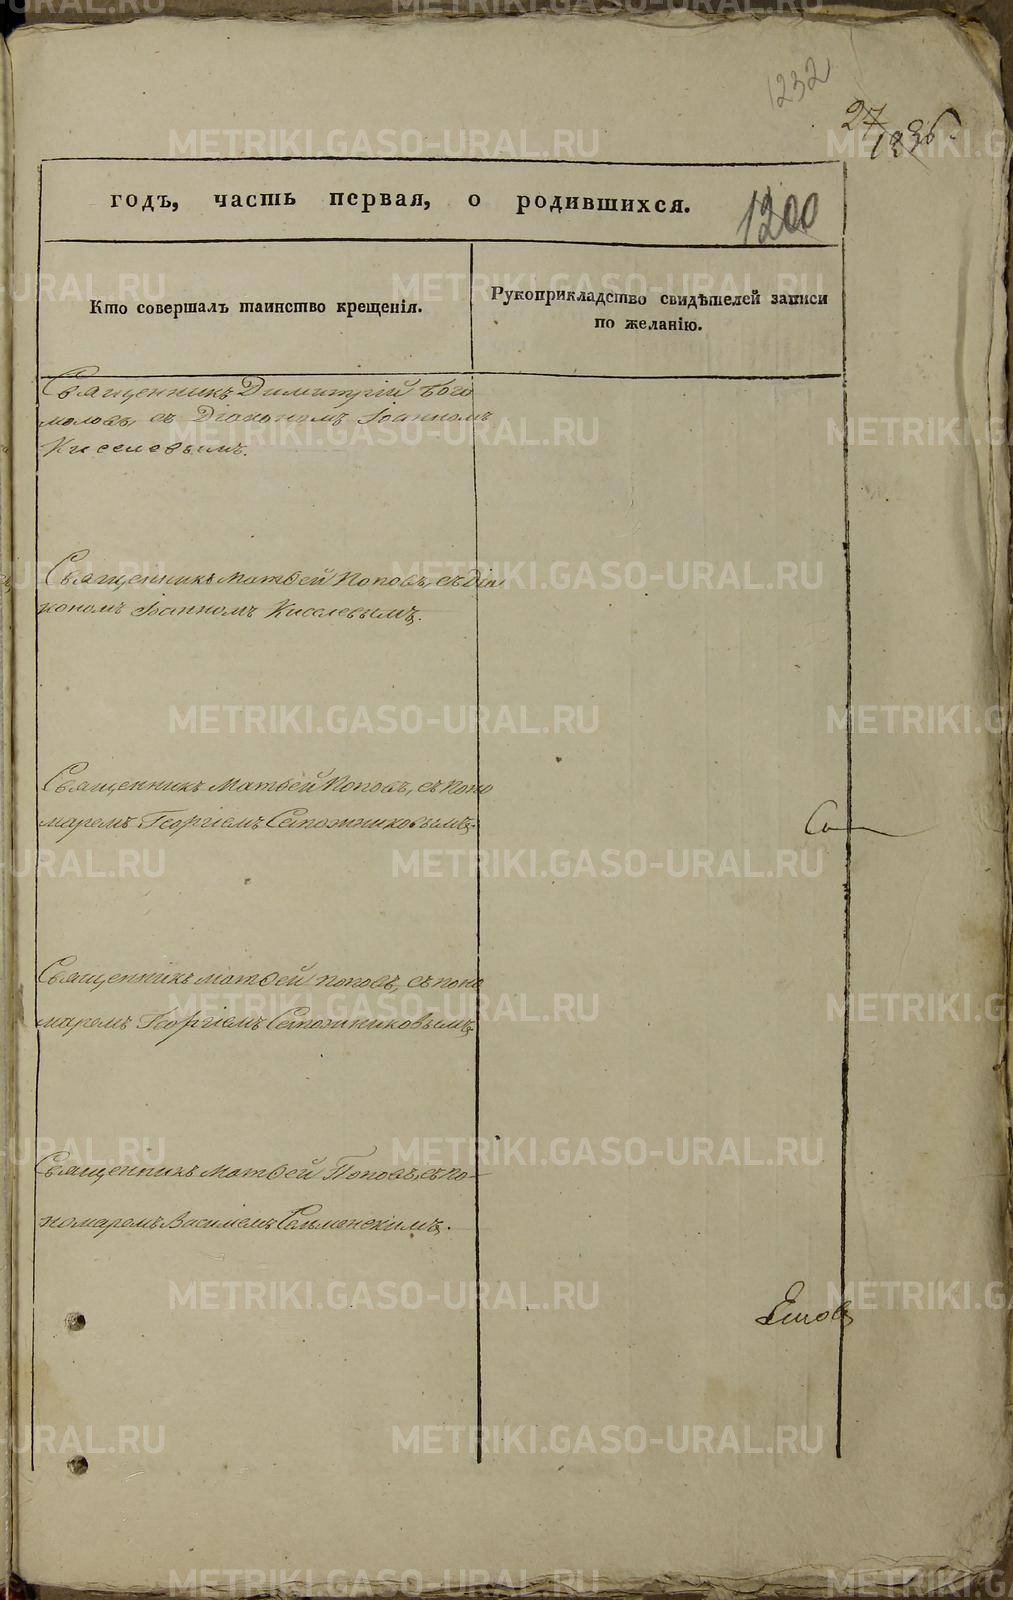 1232
27
1236.
годъ, часть первая, о родившихся.
1200
Кто совершалъ таинство крещенія.
Рукоприкладство свидѣтелей записи
по желанію.
Священникъ Димитрій Бого
моловъ, съ Діакономъ Іоанномъ
Киселевымъ.
Священникъ Матѳей Поповъ, съ діа
кономъ Іоанномъ Киселевымъ.
Священникъ Матѳей Поповъ, съ поно
маремъ Георгіемъ Сапожниковымъ.
Священникъ Матѳей Поповъ, съ поно
маремъ Георгіемъ Сапожниковымъ.
Священникъ Матѳей Поповъ, съ по-
номаремъ Василіемъ
METRIKI.GASO-URAL.RU